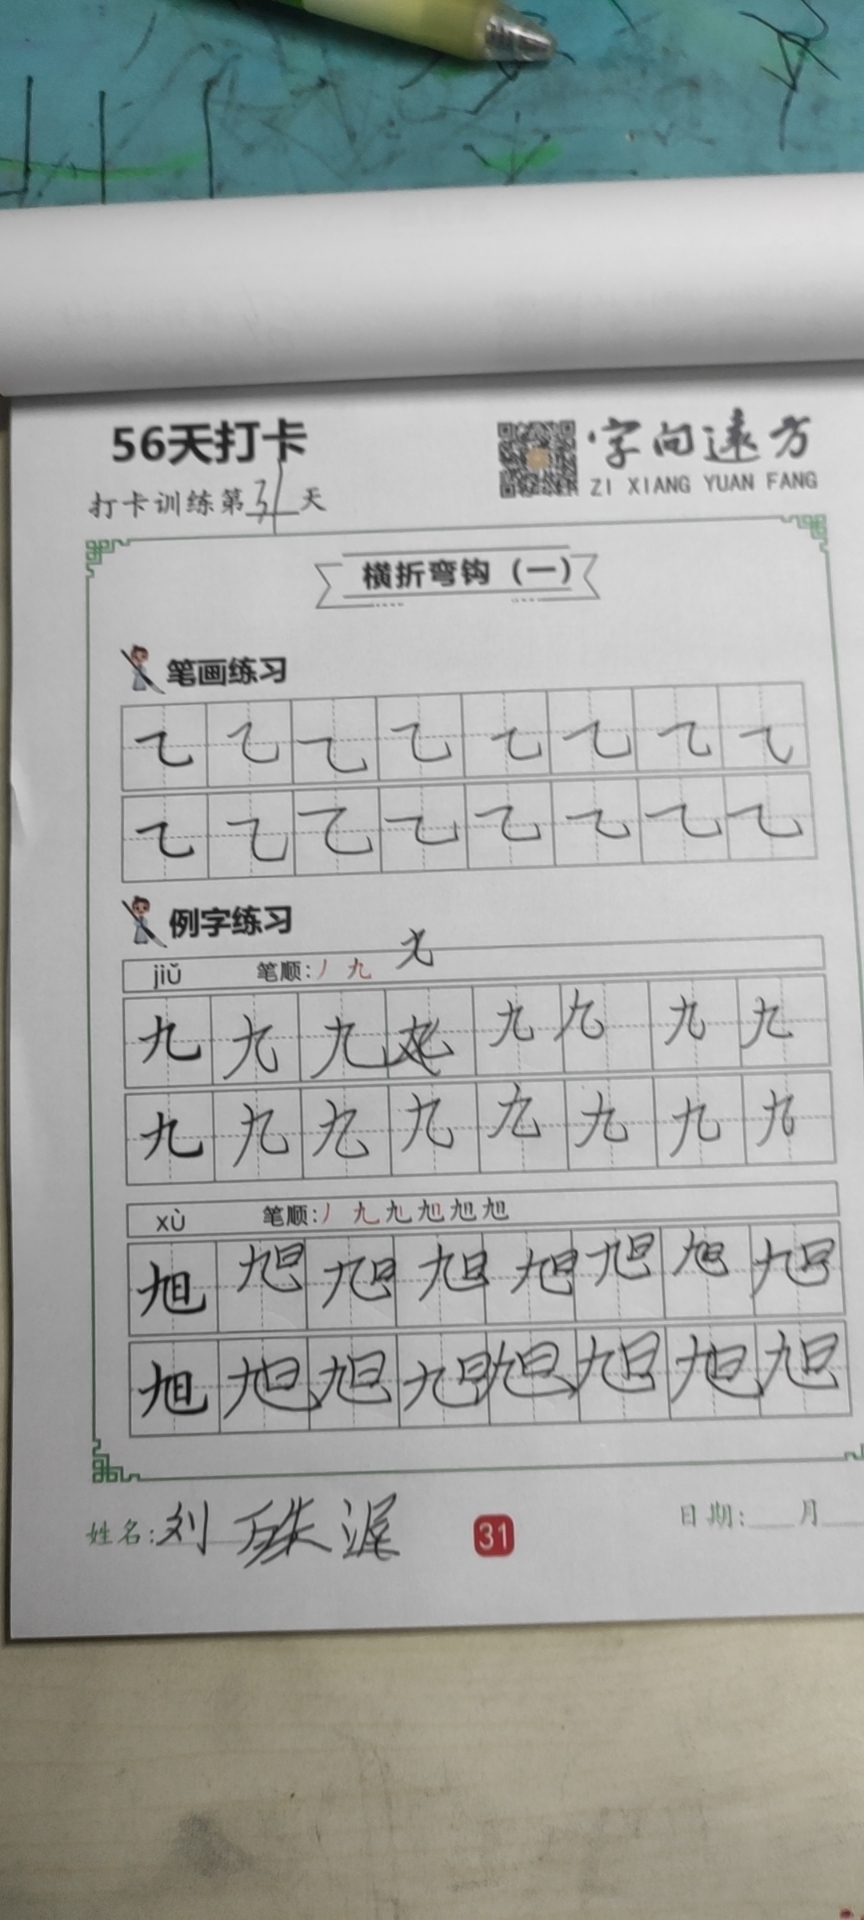 56天打卡
字向远方
ZI XIANG YUAN FANG
打卡训练第31天
横折弯钩（一）
笔画练习
乙 乙 乙 乙 乙 乙 乙 乙
乙 乙 乙 乙 乙 乙 乙 乙
例字练习
jiǔ 笔顺:丿 九
九 九 九 九 九 九 九
九 九 九 九 九 九 九 九
xù 笔顺:丿 九 九 旭 旭 旭
旭 旭 旭 旭 旭 旭 旭 旭
旭 旭 旭 旭 旭 旭 旭 旭
姓名:刘
31
日期:__月